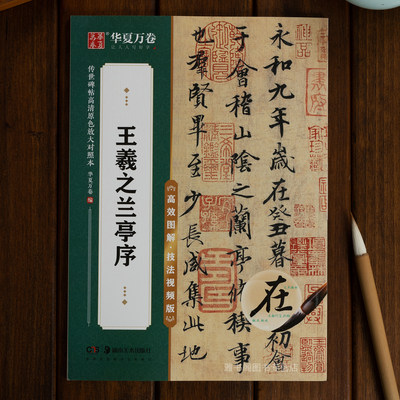 华夏万卷
让人人写好字
传世碑帖高清原色放大对照本
华夏万卷 编
王羲之兰亭序
高效图解·技法视频版
湖南美术出版社
永和九年歲在癸丑暮
初會
于會稽山陰之蘭亭脩稧事
也羣賢畢至少長咸集此地
在